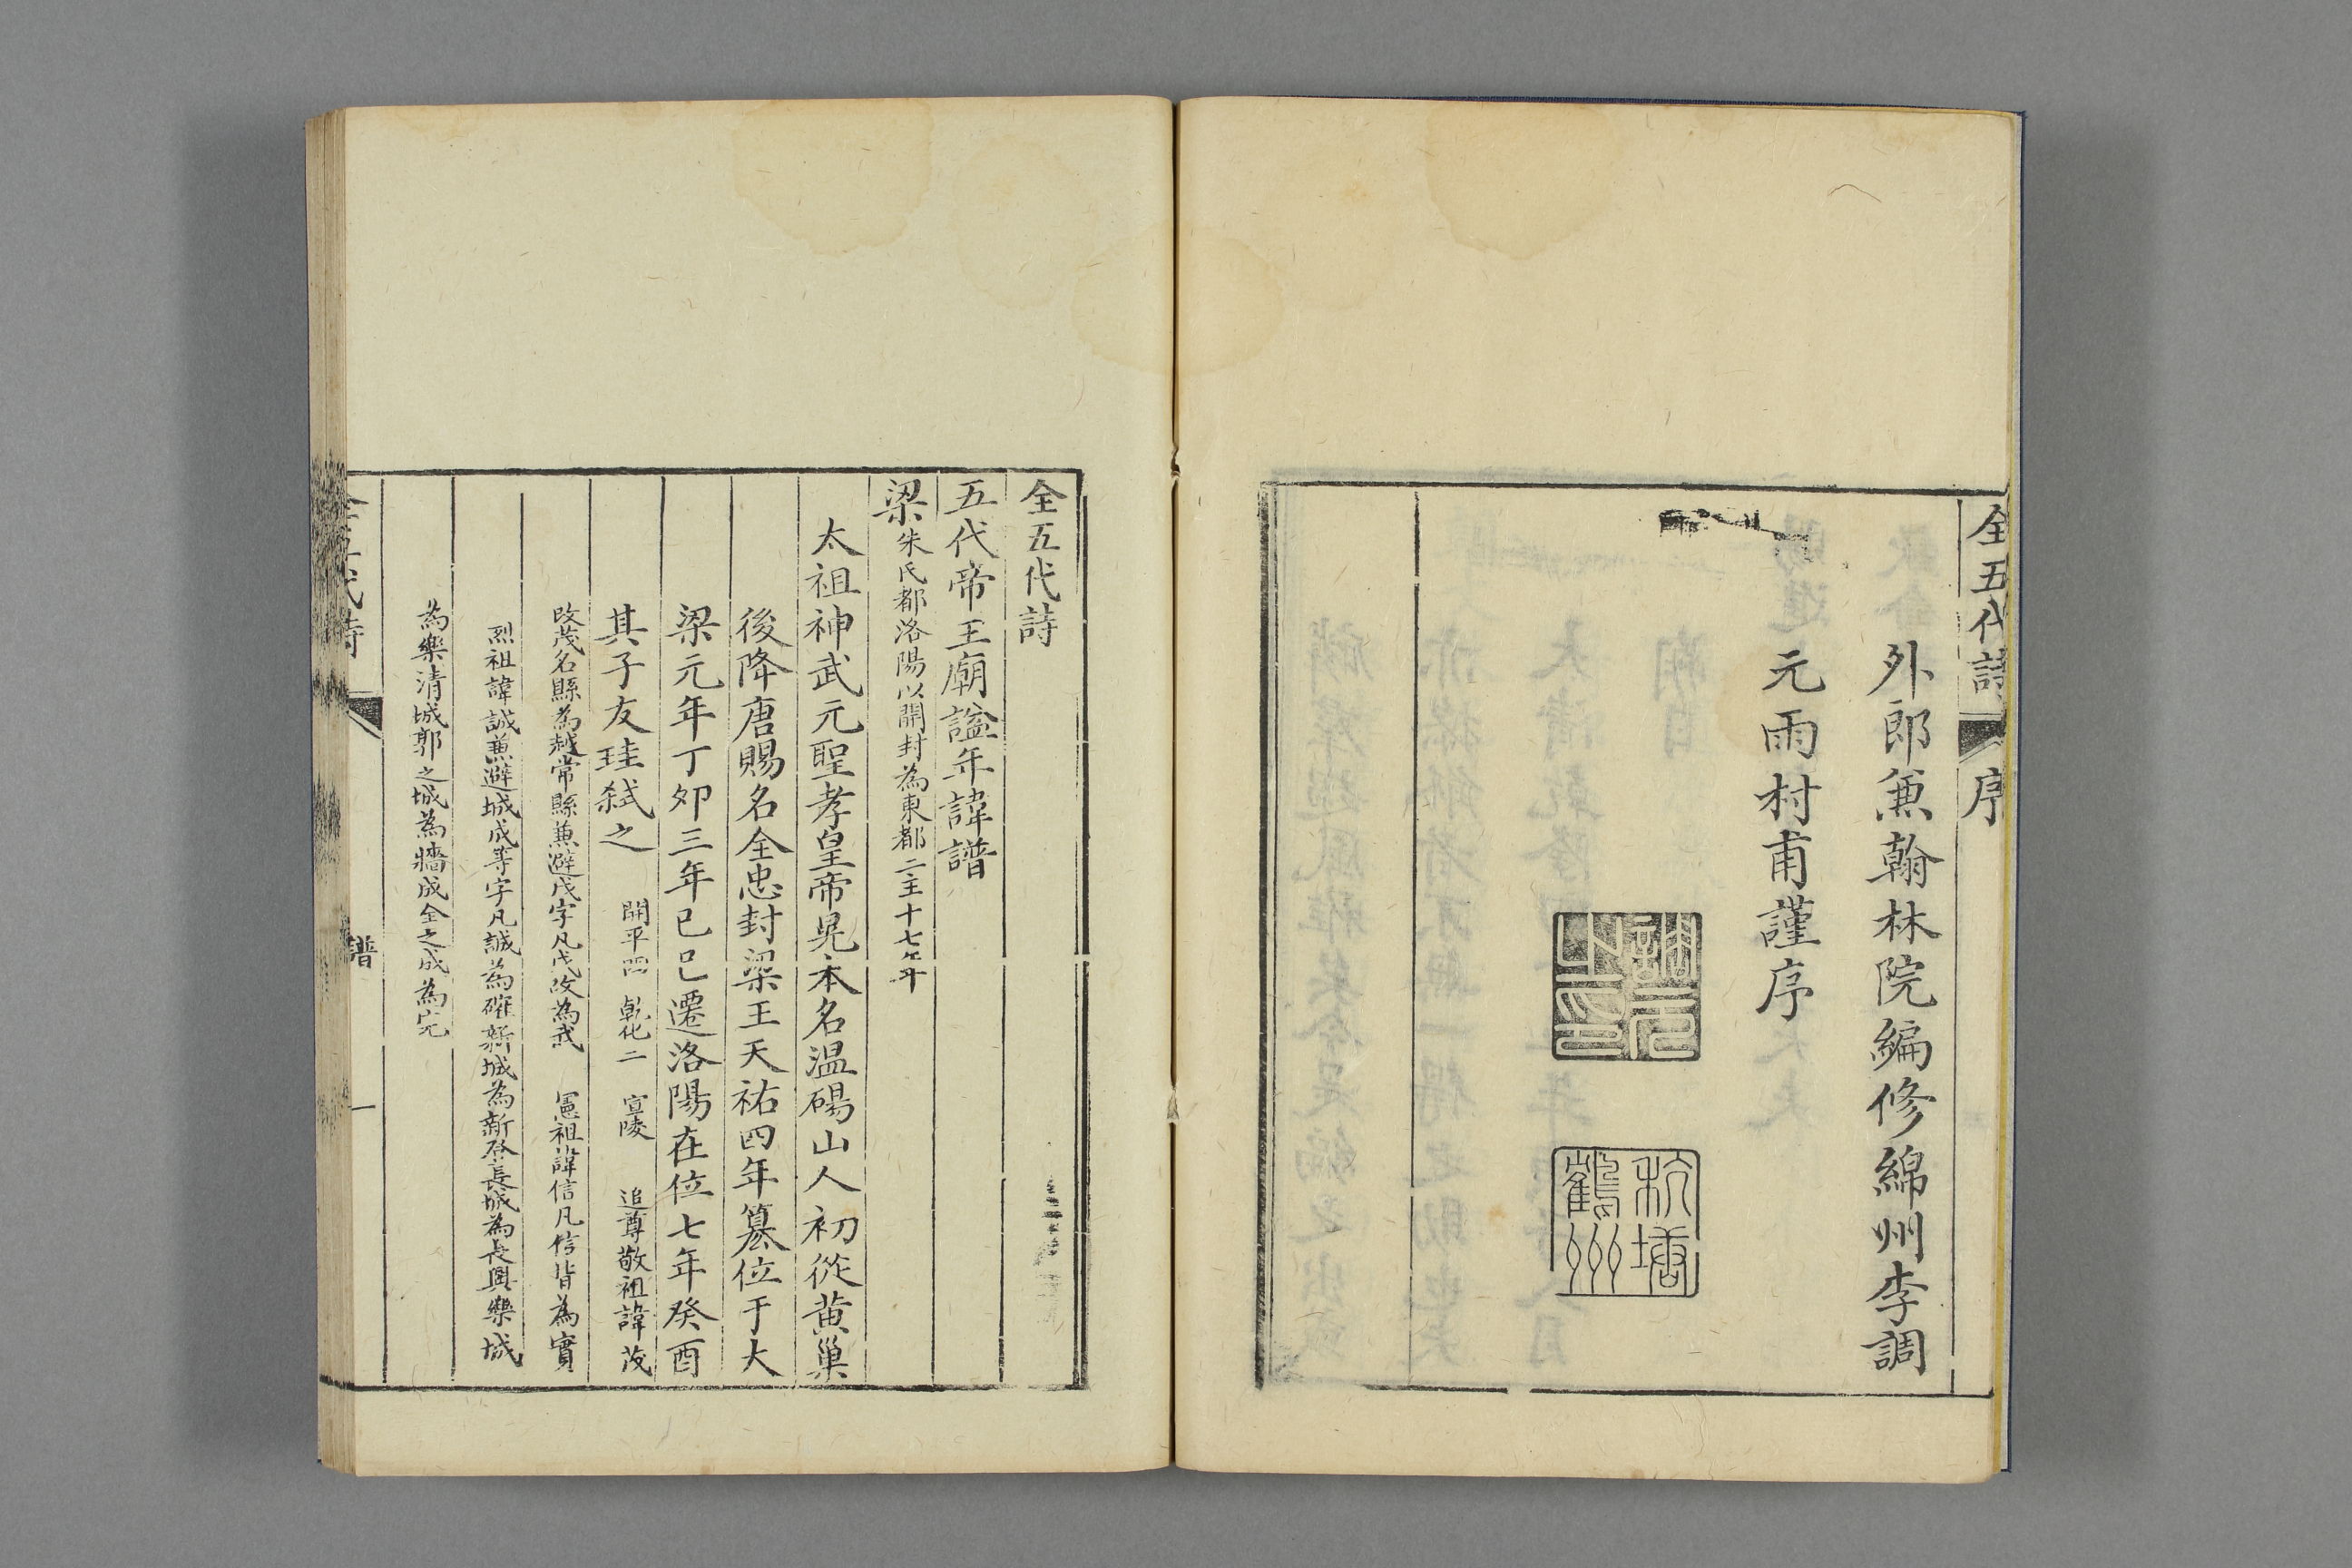 全五代詩
序
外郎兼翰林院編修綿州李調
元雨村甫謹序
調元之印
杭塘鶴洲
全五代詩
五代帝王廟諡年諱譜
梁朱氏都洛陽以開封為東都二主十七年
太祖神武元聖孝皇帝晃本名溫碭山人初從黄巢
後降唐賜名全忠封梁王天祐四年簒位于大
梁元年丁夘三年已巳遷洛陽在位七年癸酉
其子友珪弑之 開平四 乾化二 宣陵 追尊敬祖諱茂
改茂名縣為越常縣兼避戊字凡戊改為武 憲祖諱信凡信皆為實
烈祖諱誠兼避城成等字凡誠為確新城為新登長城為長興樂城
為樂清城郭之城為牆成全之成為完
全五代詩
譜
一